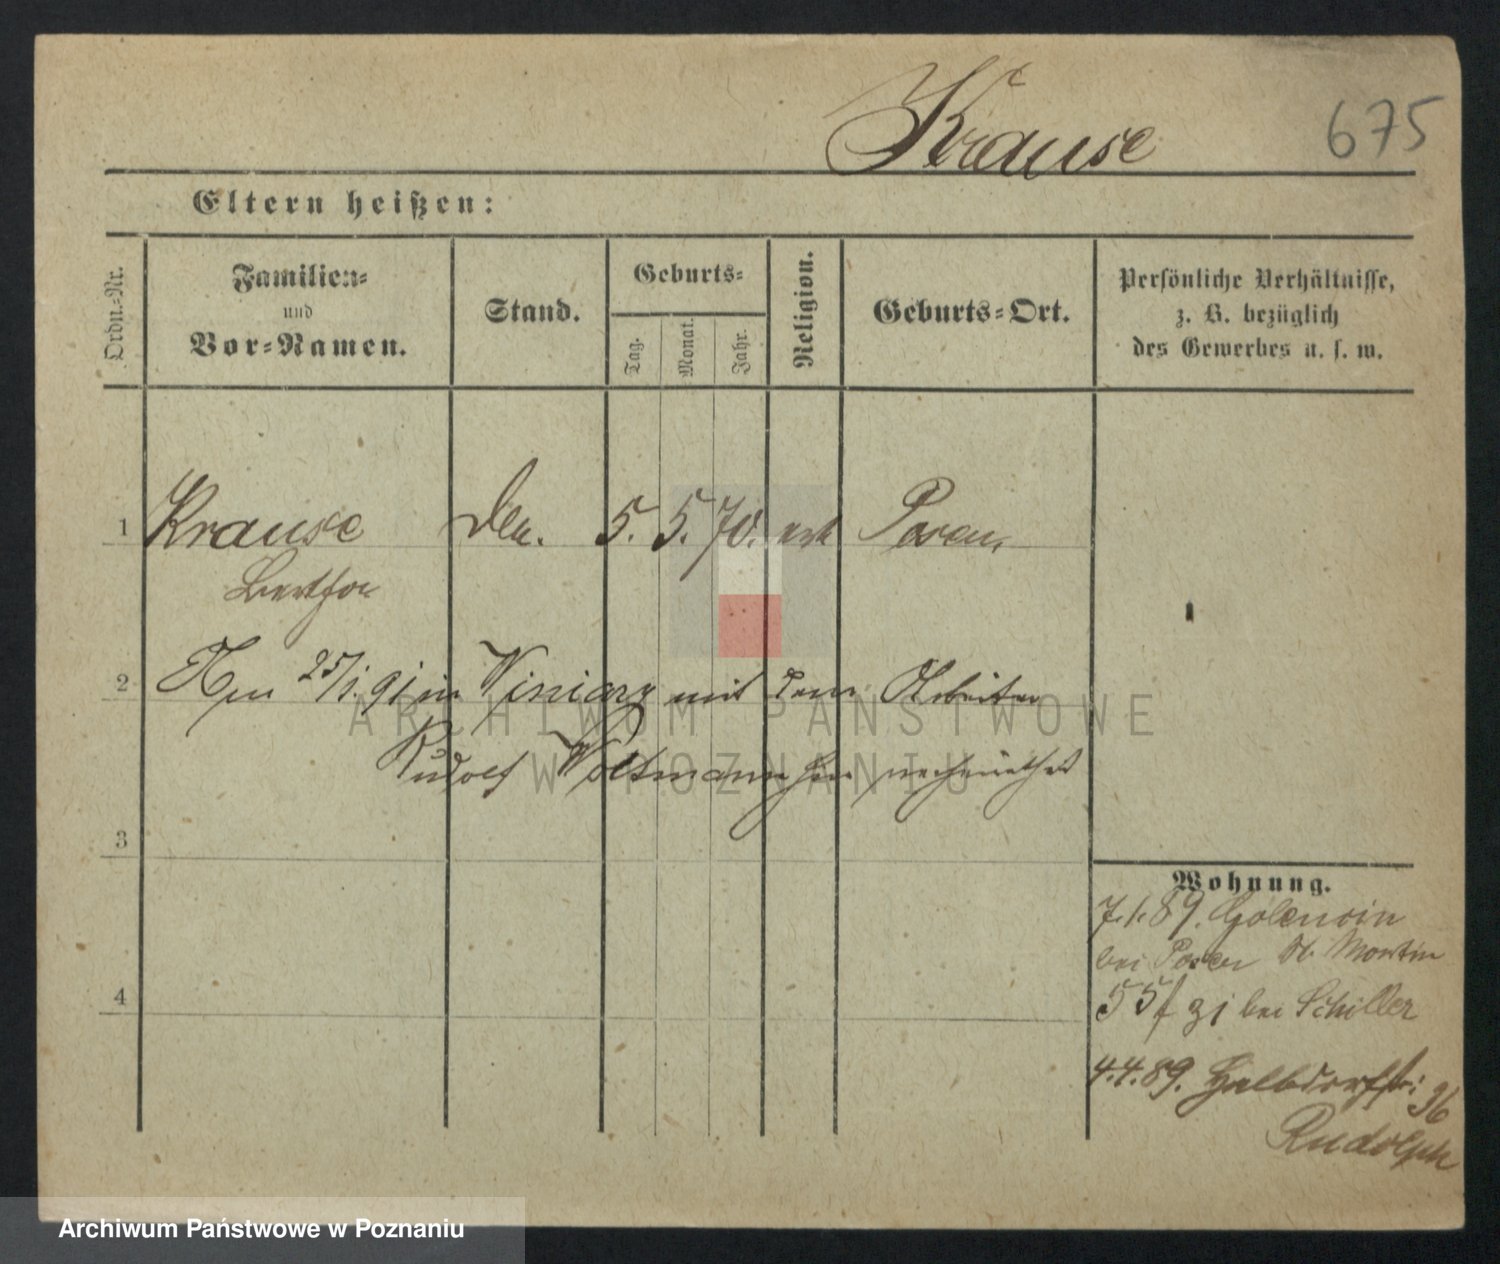 Krause 675
Eltern heißen:
Ordn.-Nr.
Familien-
und
Vor-Namen.
Stand.
Geburts-
Tag.
Monat.
Jahr.
Religion.
Geburts-Ort.
Persönliche Verhältnisse,
z. B. bezüglich
des Gewerbes u. s. w.
1 Krause 5. 5. 70. Posen
Bertha
2 Am 25/1. 91 in Winiary mit dem Arbeiter
Rudolf verheirathet
3
4
Wohnung.
7.1.89.
bei St. Martin
55 bei Schiller
4.4.89. Halbdorfstr: 36
Rudolph
ARCHIWUM PAŃSTWOWE
W POZNANIU
Archiwum Państwowe w Poznaniu